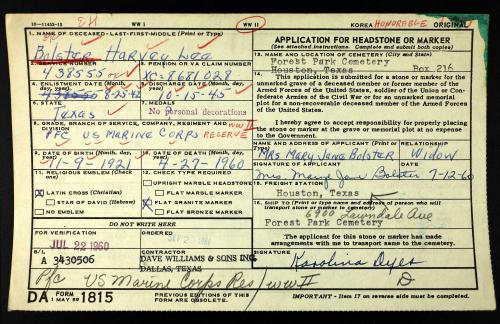 16-11453-12 EH WW I WW II KOREA HONORABLE ORIGINAL
1. NAME OF DECEASED-LAST-FIRST-MIDDLE (Print or Type)
Bolster Harvey Lee
2. SERVICE NUMBER
438555
3. PENSION OR VA CLAIM NUMBER
XC-8681028
4. ENLISTMENT DATE
8-25-42
5. DISCHARGE DATE
10-15-45
6. STATE
Texas
7. MEDALS
No personal decorations
8. GRADE, BRANCH OF SERVICE, COMPANY, REGIMENT AND DIVISION
PFC US MARINE CORPS RESERVE WW II
9. DATE OF BIRTH (Month, Day, Year)
11-9-1921
10. DATE OF DEATH (Month, Day, Year)
4-27-1960
11. RELIGIOUS EMBLEM (Check one)
X LATIN CROSS (Christian)
STAR OF DAVID (Hebrew)
NO EMBLEM
12. CHECK TYPE REQUIRED
UPRIGHT MARBLE HEADSTONE
FLAT MARBLE MARKER
X FLAT GRANITE MARKER
FLAT BRONZE MARKER
DO NOT WRITE HERE
FOR VERIFICATION
JUL 22 1960
ORDERED
A 3430506
CONTRACTOR
DAVE WILLIAMS & SONS INC.
DALLAS, TEXAS
Pfc US Marine Corps Res / WW II
DA FORM 1 MAY 59 1815
PREVIOUS EDITIONS OF THIS FORM ARE OBSOLETE.
APPLICATION FOR HEADSTONE OR MARKER
(See attached instructions. Complete and submit both copies)
13. NAME AND LOCATION OF CEMETERY (City and State)
Forest Park Cemetery
Houston, Texas Box 216
14. This application is submitted for a stone or marker for the
unmarked grave of a deceased member or former member of the
Armed Forces of the United States, soldier of the Union or Con-
federate Armies of the Civil War or for an unmarked memorial
plot for a non-recoverable deceased member of the Armed Forces
of the United States.
I hereby agree to accept responsibility for properly placing
the stone or marker at the grave or memorial plot at no expense
to the Government.
NAME AND ADDRESS OF APPLICANT (Print or Type) RELATIONSHIP
MRS MARY JANE BOLSTER Widow
SIGNATURE OF APPLICANT DATE
Mrs. Mary Jane Bolster 7-12-60
15. FREIGHT STATION
Houston, Texas
16. SHIP TO (Print or type name and address of person who will
transport stone or marker to cemetery)
6900 Lawndale Ave
Forest Park Cemetery
The applicant for this stone or marker has made
arrangements with me to transport same to the cemetery.
SIGNATURE
Karolina Dyer
IMPORTANT - Item 17 on reverse side must be completed.